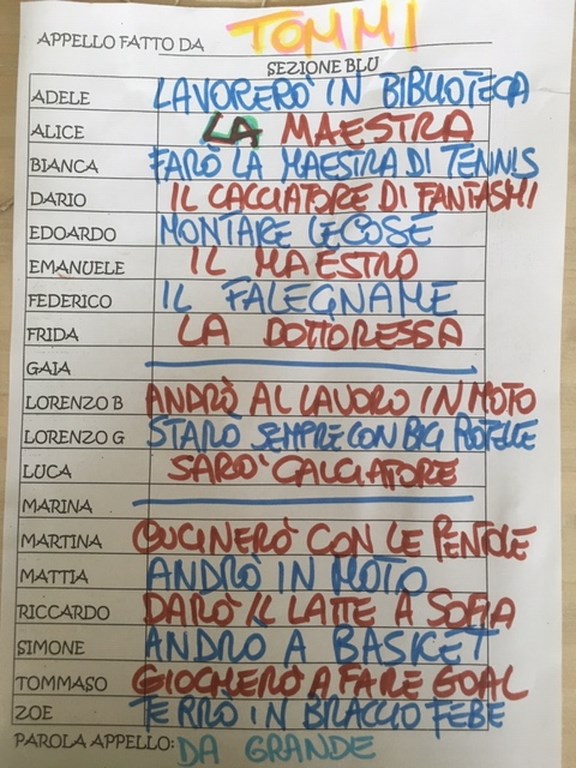 APPELLO FATTO DA TOMMI
SEZIONE BLU
ADELE LAVORERÒ IN BIBLIOTECA
ALICE LA MAESTRA
BIANCA FARÒ LA MAESTRA DI TENNIS
DARIO IL CACCIATORE DI FANTASMI
EDOARDO MONTARE LE COSE
EMANUELE IL MAESTRO
FEDERICO IL FALEGNAME
FRIDA LA DOTTORESSA
GAIA
LORENZO B ANDRÒ AL LAVORO IN MOTO
LORENZO G STARÒ SEMPRE CON BIG ROTELLE
LUCA SARO' CALCIATORE
MARINA
MARTINA CUCINERÒ CON LE PENTOLE
MATTIA ANDRÒ IN MOTO
RICCARDO DARÒ IL LATTE A SOFIA
SIMONE ANDRÒ A BASKET
TOMMASO GIOCHERÒ A FARE GOAL
ZOE TERRÒ IN BRACCIO FEBE
PAROLA APPELLO: DA GRANDE